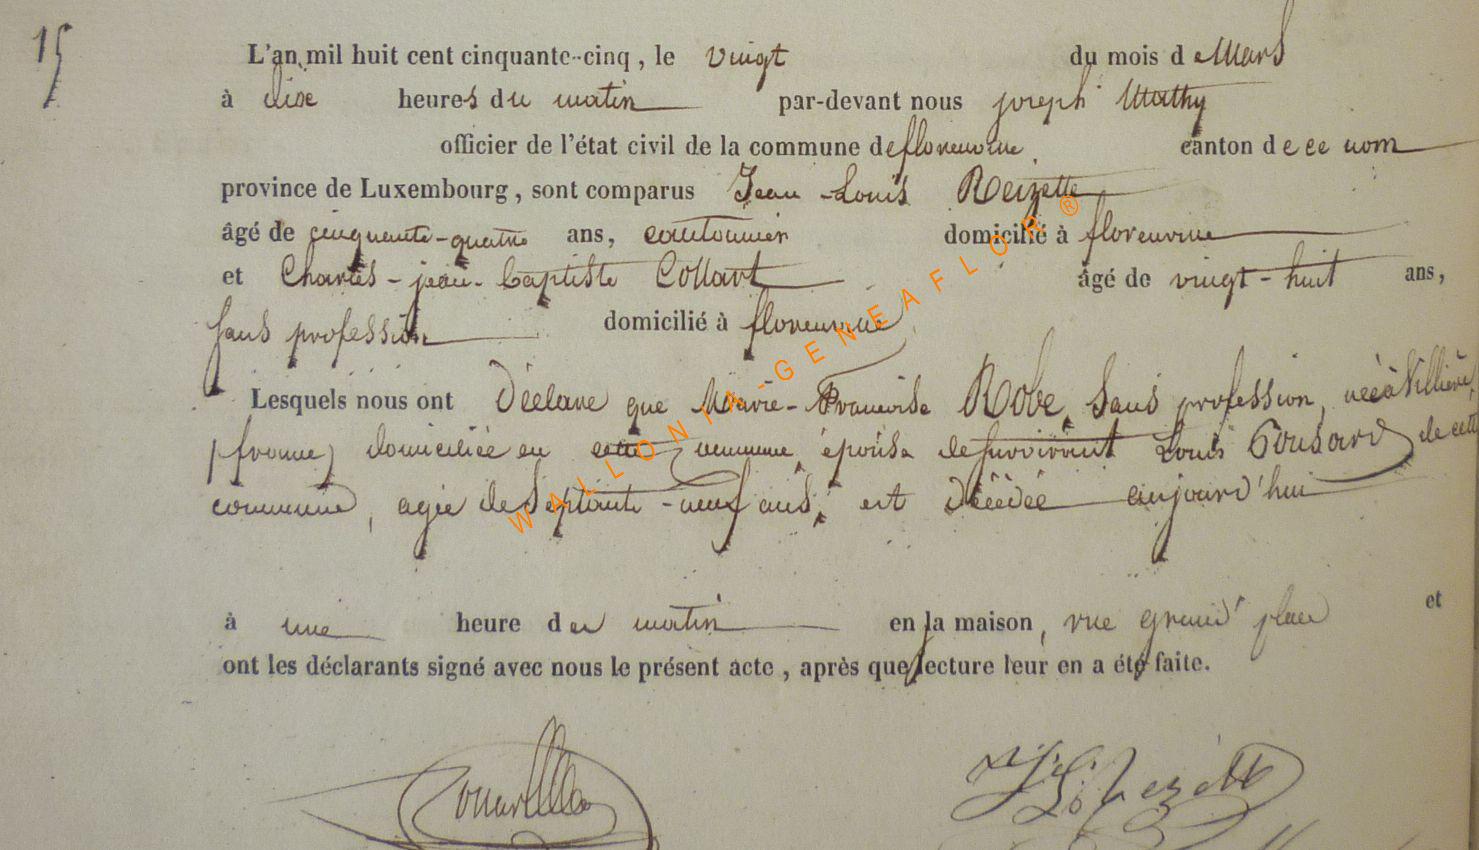 15
L'an mil huit cent cinquante-cinq, le vingt du mois de Mars
à dixe heures du matin par-devant nous joseph Mathy
officier de l'état civil de la commune de florenville canton de ce nom
province de Luxembourg, sont comparus Jean-Louis Reizette
âgé de cinquante-quatre ans, cantonnier domicilié à florenville
et Charles-jean-baptiste Collart âgé de vingt-huit ans,
sans profession domicilié à florenville
Lesquels nous ont Déclaré que Marie-Françoise Robe, sans profession, née à Villiere,
(france) domiciliée en cette commune, épouse de survivant Louis Gousard de cette
commune, agée de Septante-neuf ans, est décédée aujourd'hui
à une heure du matin en sa maison, rue grand'place et
ont les déclarants signé avec nous le présent acte, après que lecture leur en a été faite.
WALLONIA-GENEAFLOR®